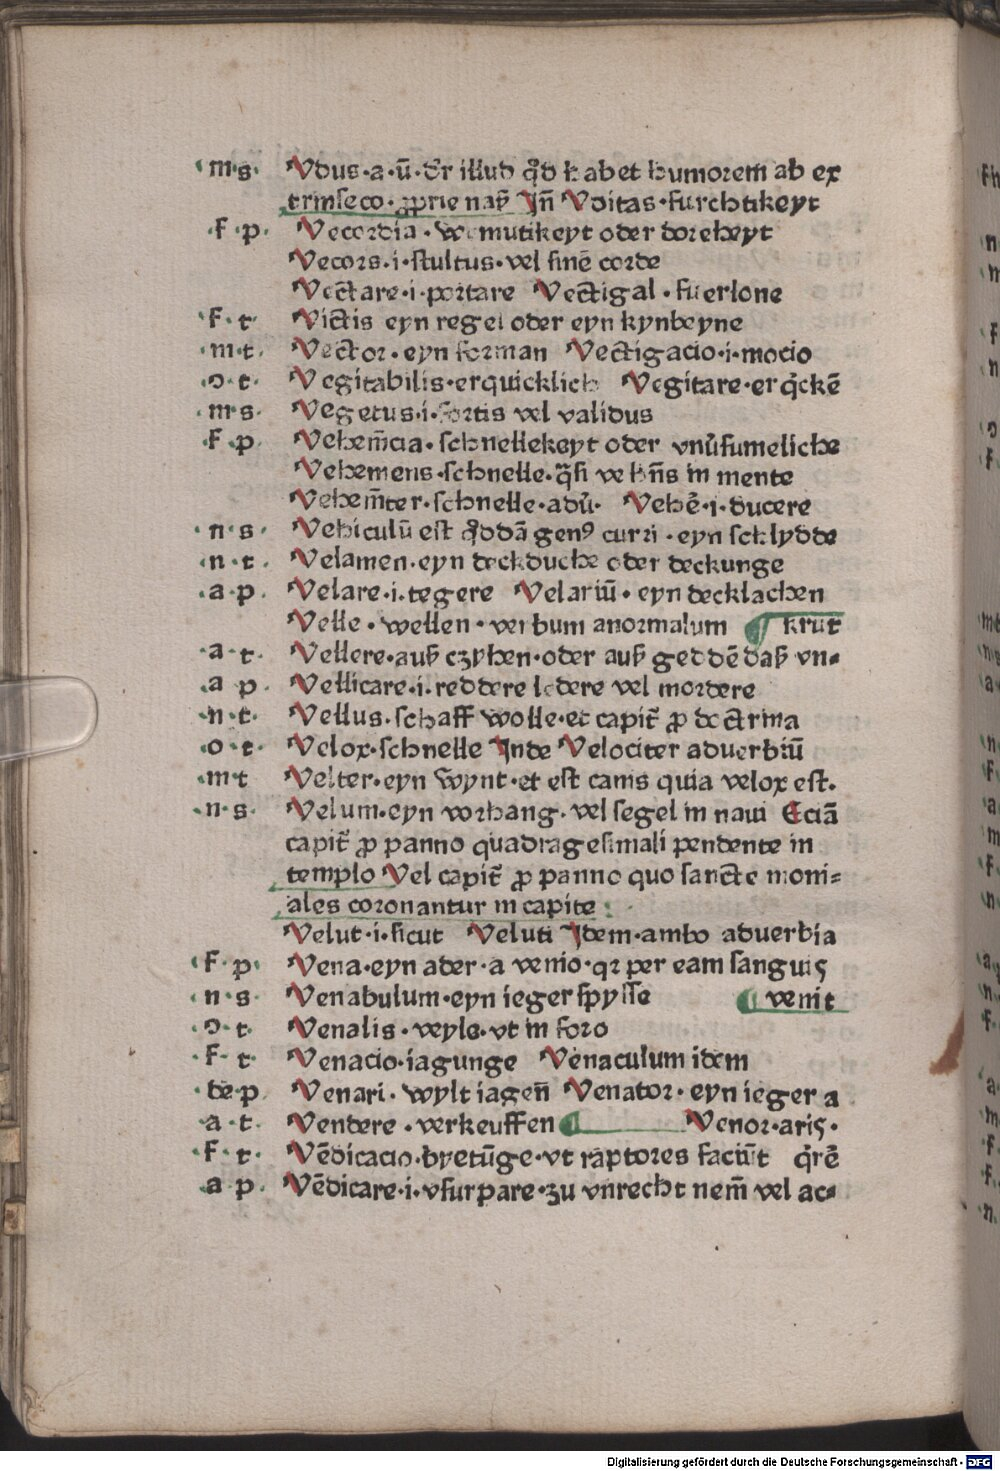 ·m·s· Vdus·a·ū·dr̄ illud qd̄ habet humorem ab ex
trinseco·ꝓprie nap̄ Jn̄ Vditas·furchtikeyt
·f·p· Vecordia· wemutikeyt oder doreheyt
Vecors·i·ſtultus·vel ſinē corde
Vectare·i·portare Vectigal·fuerlone
·f·t· Victis eyn regel oder eyn kynbeyne
·m·t· Vector·eyn forman Vectigacio·i·mocio
·ↄ·t· Vegitabilis·erquicklich Vegitare·erq̇ckē
·m·s· Vegetus·i·fortis vel validus
·f·p· Vehem̄cia·ſchnellekeyt oder vnu̇ſumeliche
Vehemens·ſchnelle·q̄ſi vehn̄s in mente
Vehem̄ter·ſchnelle·adu̇· Vehē·i·ducere
·n·s· Vehiculū eſt qd̄dā genꝰ curri·eyn ſchlydde
·n·t· Velamen·eyn deckduche oder deckunge
·a·p· Velare·i·tegere Velariū·eyn decklachen
Velle·wellen·verbum anormalum ¶ krut
·a·t· Vellere·auß czyhen·oder auß geddē daß vn-
·a p· Vellicare·i·reddere ledere vel mordere
·n·t· Vellus·ſchaff wolle·et capit̄ ꝓ doctrina
·o·t· Velox·ſchnelle Jnde Velociter aduerbiū
·m·t Velter·eyn wynt·et eſt canis quia velox eſt·
·n·s· Velum·eyn vorhang·vel ſegel in naui Eciā
capit̄ ꝓ panno quadrageſimali pendente in
templo Vel capit̄ ꝓ panno quo ſancte moni=
ales coronantur in capite :
Velut·i·ſicut Veluti Jdem·ambo aduerbia
·f·p· Vena·eyn ader·a venio·qꝛ per eam ſanguis
·n·s· Venabulum·eyn ieger ſpyſſe ¶ venit
·ↄ·t· Venalis·veyle·vt in foro
·f·t· Venacio·iagunge Venaculum idem
·de·p· Venari·wylt iagen̄ Venator·eyn ieger a
·a·t· Vendere·verkeuffen ¶ Venor·aris·
·f·t· Vēdicacio·byetūge·vt raptores faciūt qr̄ē
·a p· Vēdicare·i·vſurpare·zu vnrecht nem̄ vel ac=
Digitalisierung gefördert durch die Deutsche Forschungsgemeinschaft - DFG